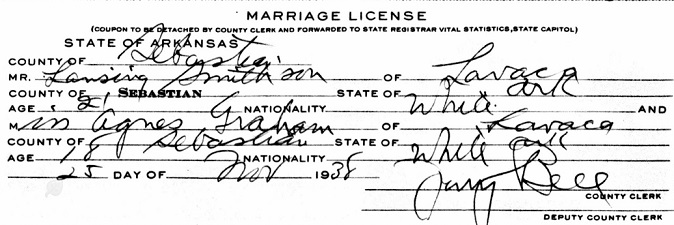 MARRIAGE LICENSE
(COUPON TO BE DETACHED BY COUNTY CLERK AND FORWARDED TO STATE REGISTRAR VITAL STATISTICS, STATE CAPITOL)
STATE OF ARKANSAS
COUNTY OF Sebastian
MR. Lansing Smithson OF Lavaca
COUNTY OF SEBASTIAN STATE OF Ark
AGE 21 NATIONALITY White AND
Miss Agnes Graham OF Lavaca
COUNTY OF Sebastian STATE OF Ark
AGE 18 NATIONALITY White
25 DAY OF Nov 1938
Bell
COUNTY CLERK
DEPUTY COUNTY CLERK